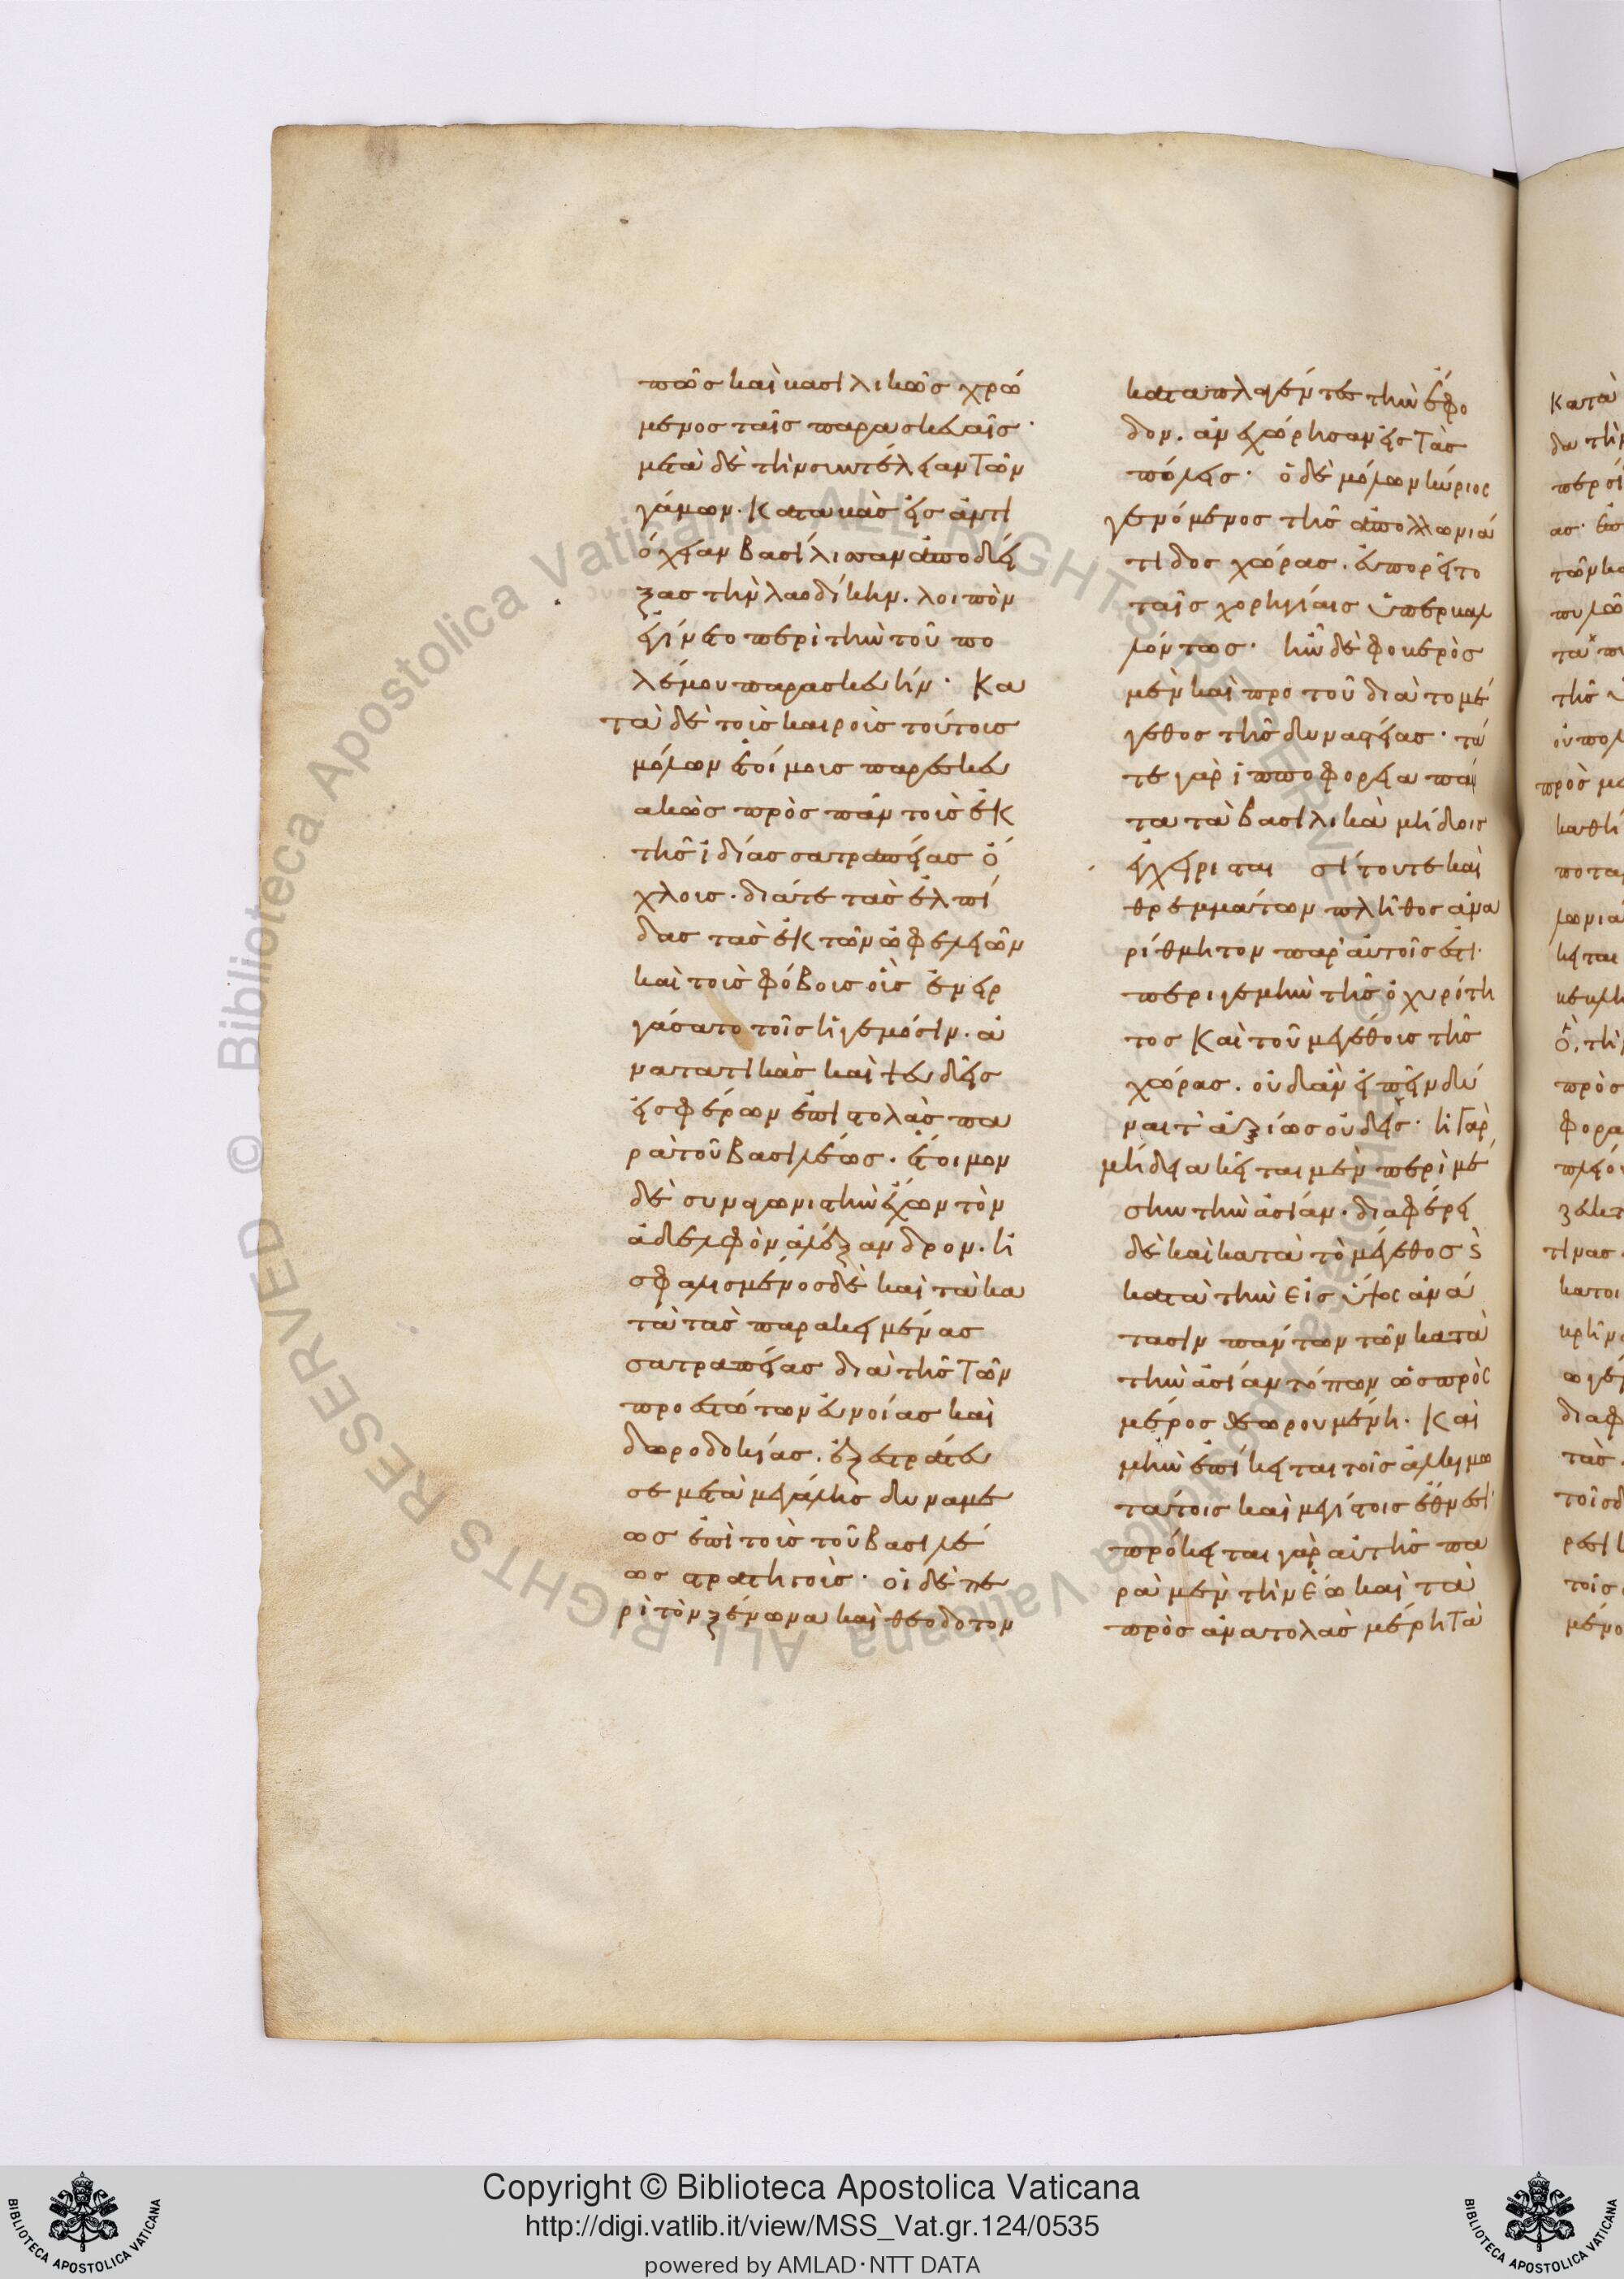 πῶς καὶ βασιλικῶς χρώ
μενος ταῖς παρασκευαῖς·
μετὰ δὲ τὴν συντέλειαν τῶν
γάμων. καταβὰς εἰς ἀντι
όχειαν βασίλισσαν ἀποδεί
ξας τὴν λαοδίκην. λοιπὸν
ἐγίνετο περὶ τὴν τοῦ πο
λέμου παρασκευήν· Κα
τὰ δὲ τοὺς καιροὺς τούτους
μόλων ἑτοίμους παρεσκευ
ακὼς πρὸς πᾶν τοὺς ἐκ
τῆς ἰδίας σατραπείας ὄ
χλους· διά τε τὰς ἐλπί
δας τὰς ἐκ τῶν ὠφελειῶν
καὶ τοὺς φόβους οὓς ἐνειρ
γάσατο τοῖς ἡγεμόσιν. ἀ
νατατικὰς καὶ ψευδεῖς
εἰσφέρων ἐπιστολὰς πα
ρὰ τοῦ βασιλέως. ἕτοιμον
δὲ συναγωνιστὴν ἔχων τὸν
ἀδελφὸν ἀλέξανδρον. ἠ
σφαλισμένος δὲ καὶ τὰ κα
τὰ τὰς παρακειμένας
σατραπείας διὰ τῆς τῶν
προεστώτων εὐνοίας καὶ
δωροδοκίας. ἐξεστράτευ
σε μετὰ μεγάλης δυνάμε
ως ἐπὶ τοὺς τοῦ βασιλέ
ως στρατηγούς· οἱ δὲ πε
ρὶ τὸν ξένωνα καὶ θεόδοτον
καταπλαγέντες τὴν ἔφο
δον. ἀνεχώρησαν εἰς τὰς
πόλεις· ὁ δὲ μόλων κύριος
γενόμενος τῆς ἀπολλωνιά
τιδος χώρας. εὐπορεῖτο
ταῖς χορηγίαις ὑπερβαλ
λόντως· ἦν δὲ φοβερὸς
μὲν καὶ πρὸ τοῦ διὰ τὸ μέ
γεθος τῆς δυναστείας· τά
τε γὰρ ἱπποφορεια πάν
τα τὰ βασιλικὰ μήδοις
ἐγχείρισται σίτου τε καὶ
θρεμμάτων πλῆθος ἀνα
ρίθμητον παρ' αὐτοῖς ἐστι·
περί γε μὴν τῆς ὀχυρότη
τος καὶ τοῦ μεγέθους τῆς
χώρας. οὐδ' ἂν εἰπεῖν δύ
ναιτ' ἀξίως οὐδείς· ἡ γὰρ
μηδεία κεῖται μὲν περὶ μέ
σην τὴν ἀσίαν. διαφέρει
δὲ καὶ κατὰ τὸ μέγεθος ϗ
κατὰ τὴν εἰς ὕψος ἀνά
τασιν πάντων τῶν κατὰ
τὴν ἀσίαν τόπων ὡς πρὸς
μέρος θεωρουμένη· Καὶ
μὴν ἐπίκειται τοῖς ἀλκιμω
τάτοις καὶ μεγίστοις ἔθνεσι·
πρόκειται γὰρ αὐτῆς πα
ρὰ μὲν τὴν ἕω καὶ τὰ
πρὸς ἀνατολὰς μέρη τὰ
Copyright © Biblioteca Apostolica Vaticana
http://digi.vatlib.it/view/MSS_Vat.gr.124/0535
powered by AMLAD·NTT DATA